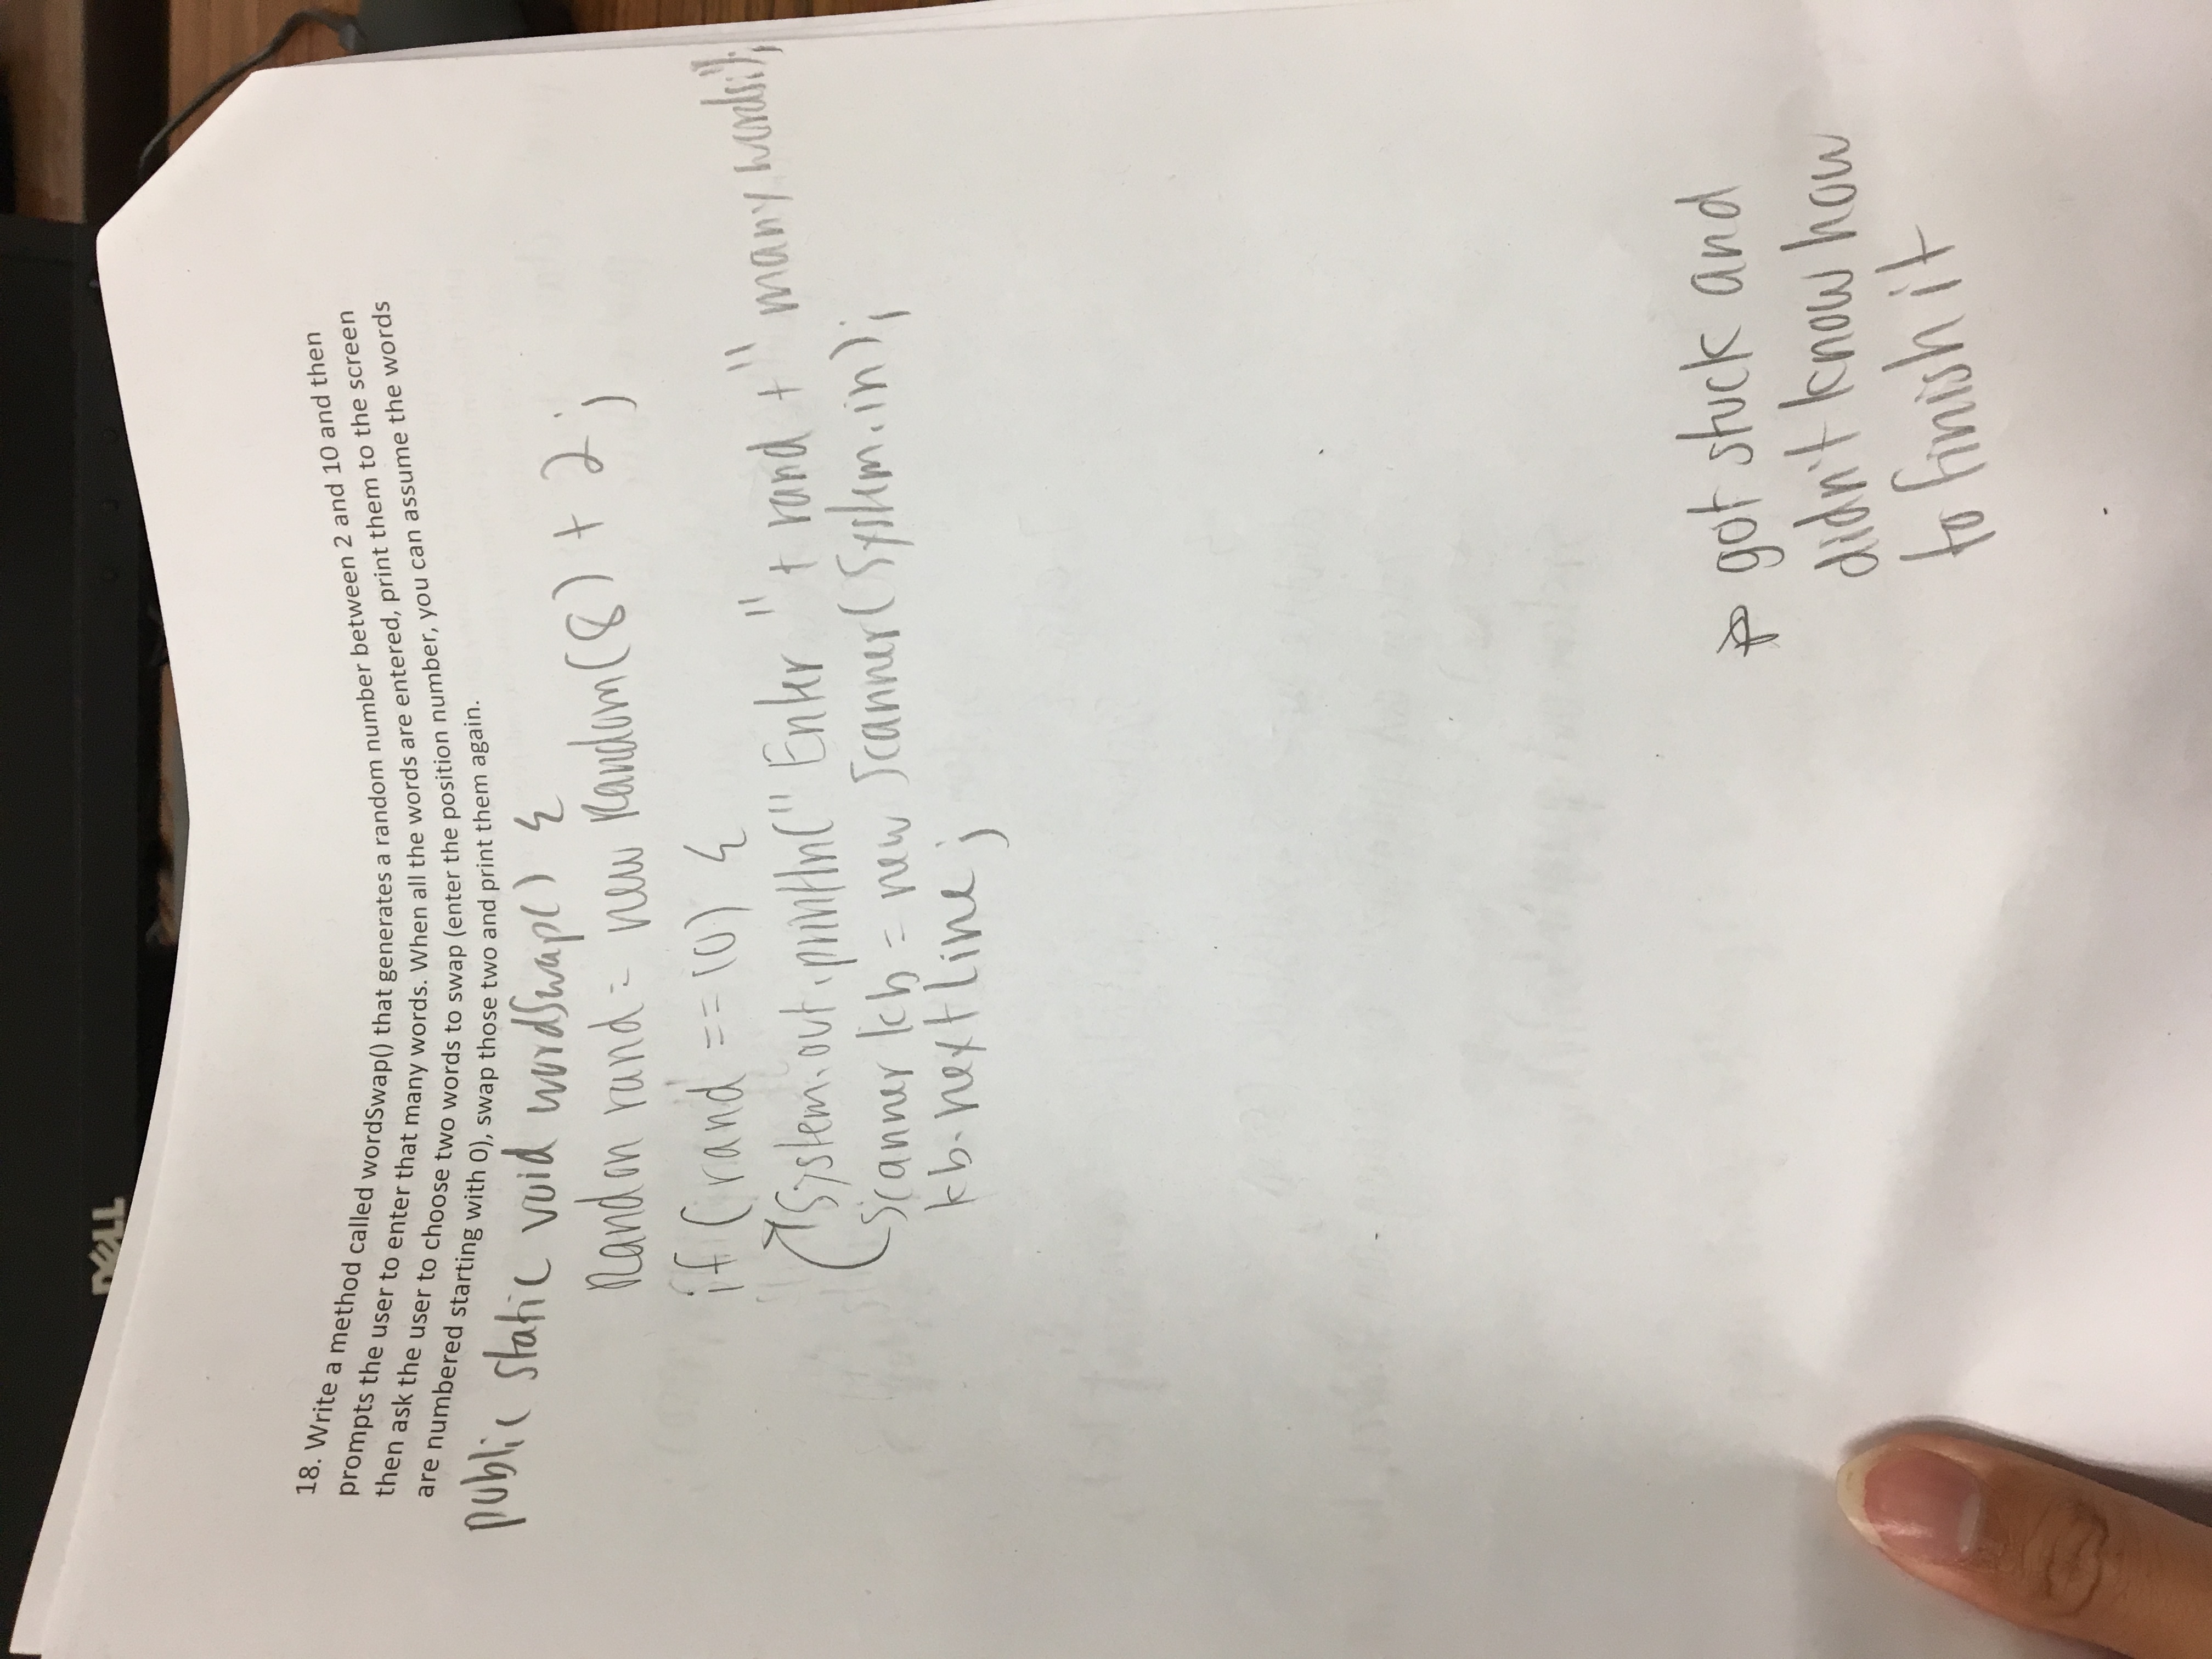 DELL
18. Write a method called wordSwap() that generates a random number between 2 and 10 and then
prompts the user to enter that many words. When all the words are entered, print them to the screen
then ask the user to choose two words to swap (enter the position number, you can assume the words
are numbered starting with 0), swap those two and print them again.
public static void wordSwap() {
Random rand = new Random(8) + 2;
if (rand == 10) {
System.out.println("Enter " + rand + " many words:");
Scanner kb = new Scanner(System.in);
kb.nextLine;
got stuck and
didn't know how
to finish it